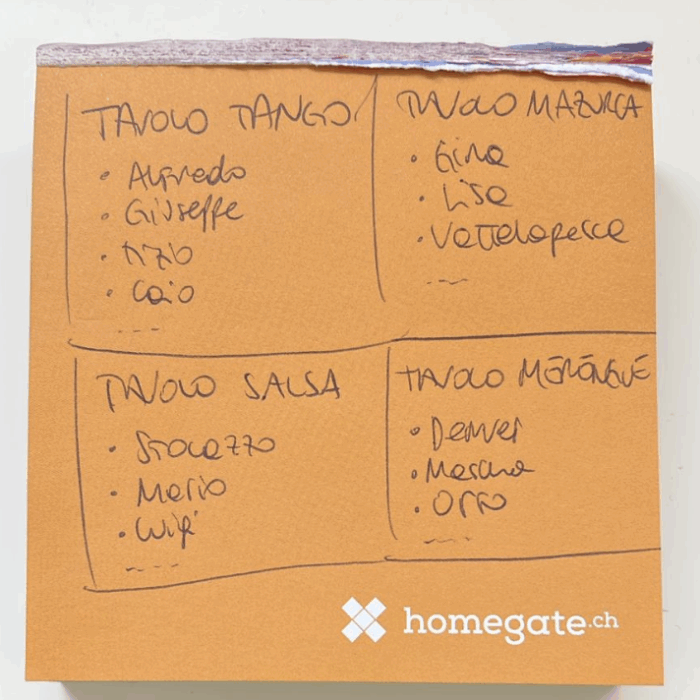 TAVOLO TANGO
• Alfredo
• Giuseppe
• Tizio
• Caio
----
TAVOLO MAZURCA
• Gina
• Lisa
• Vattelapesca
----
TAVOLO SALSA
• Stocazzo
• Mario
• Wifi
----
TAVOLO MERENGUE
• Denver
• Otto
----
homegate.ch